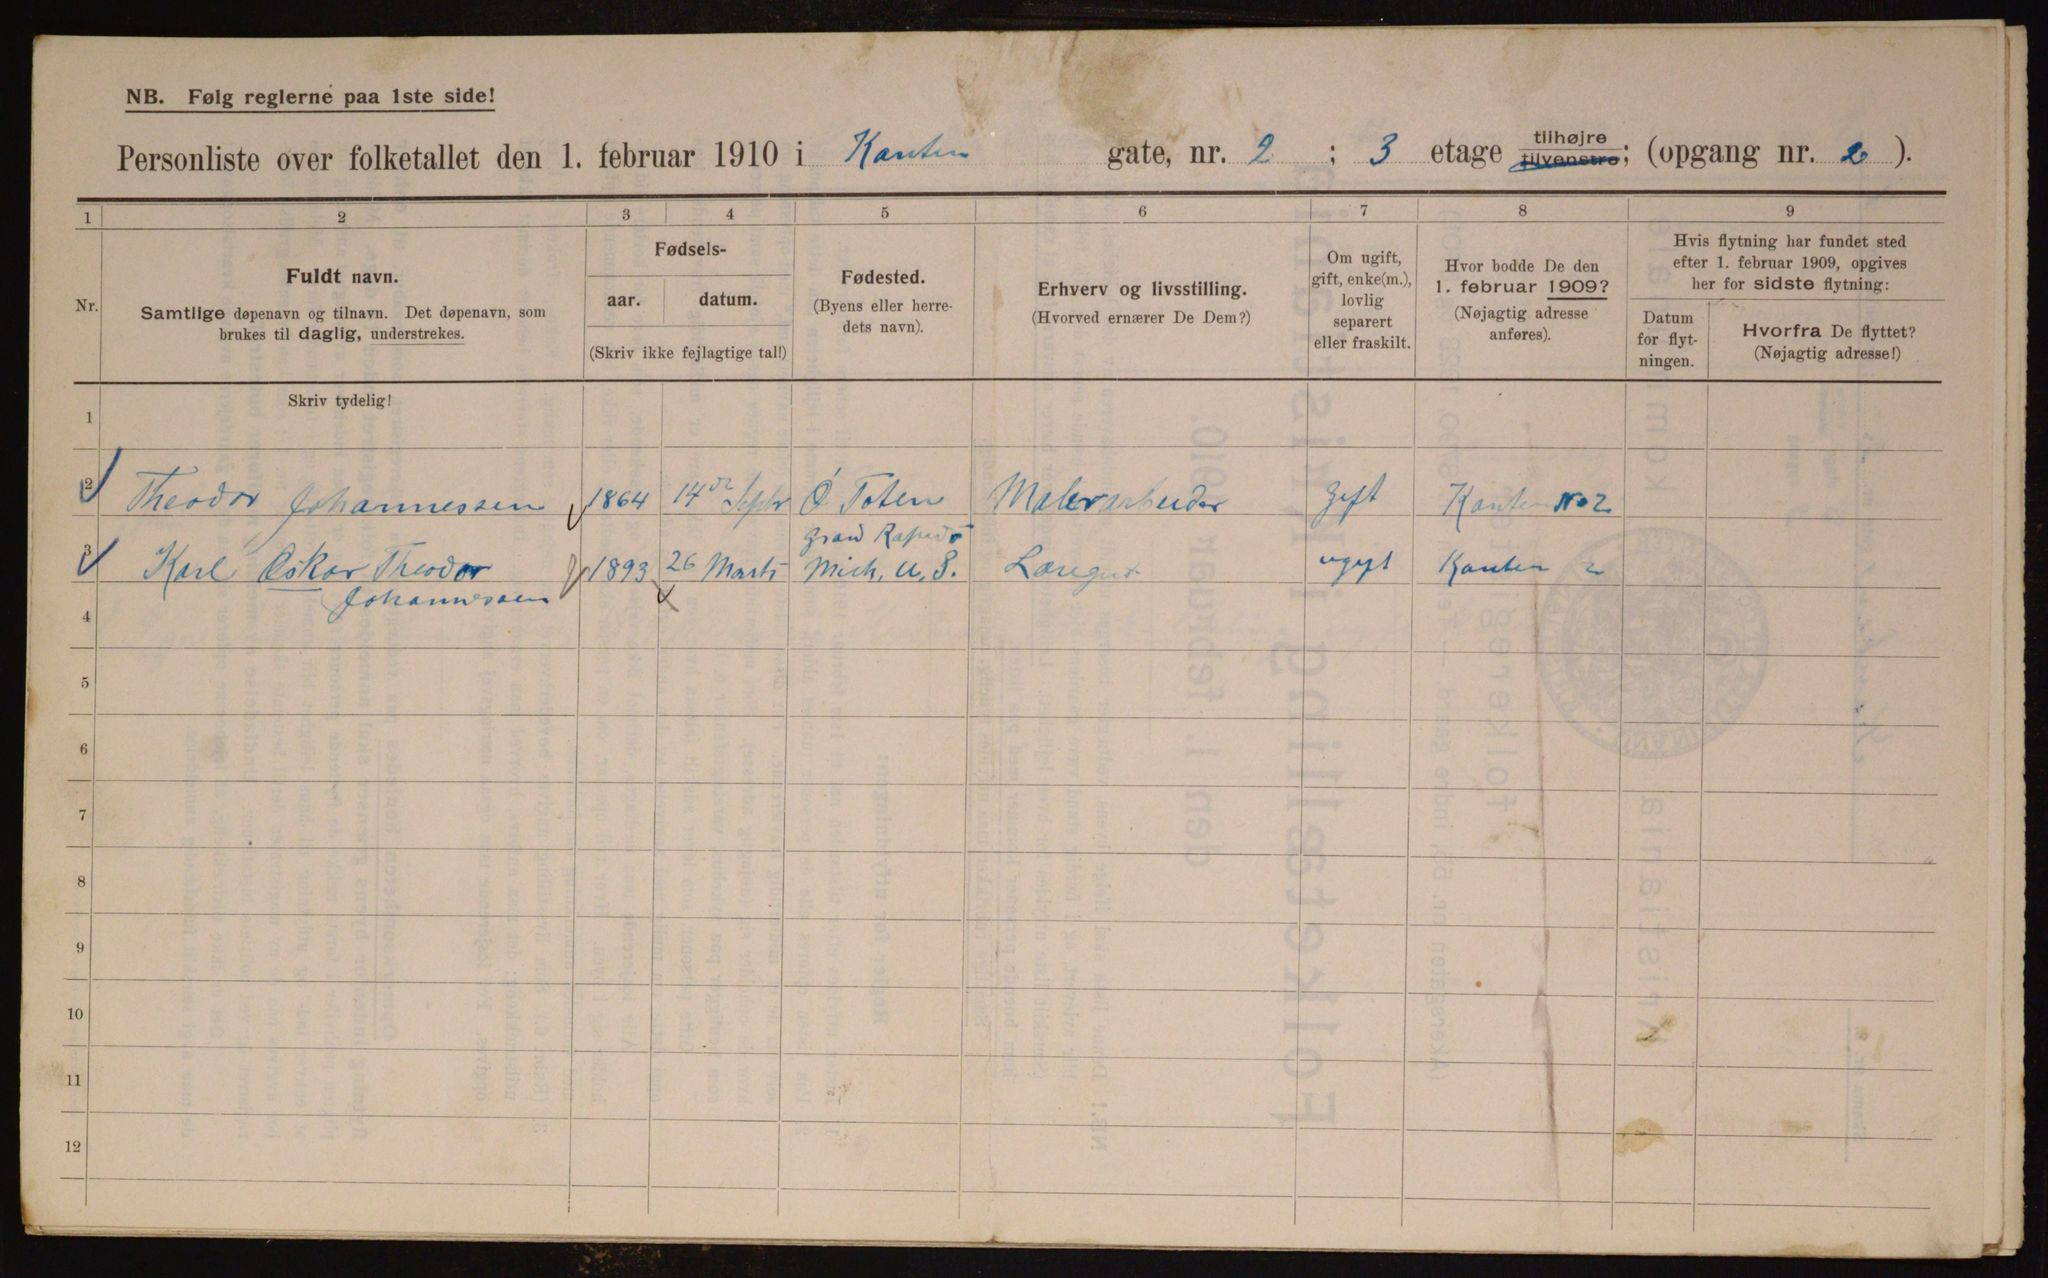 NB. Følg reglerne paa 1ste side!
Personliste over folketallet den 1. februar 1910 i Kanten gate, nr. 2 ; 3 etage tilhøjre tilvenstre; (opgang nr. 2 ).
1 2 3 4 5 6 7 8 9
Nr.
Fuldt navn.
Samtlige døpenavn og tilnavn. Det døpenavn, som
brukes til daglig, understrekes.
Fødsels-
aar. datum.
(Skriv ikke fejlagtige tal!)
Fødested.
(Byens eller herre-
dets navn).
Erhverv og livsstilling.
(Hvorved ernærer De Dem?)
Om ugift,
gift, enke(m.),
lovlig
separert
eller fraskilt.
Hvor bodde De den
1. februar 1909?
(Nøjagtig adresse
anføres).
Hvis flytning har fundet sted
efter 1. februar 1909, opgives
her for sidste flytning:
Datum
for flyt-
ningen.
Hvorfra De flyttet?
(Nøjagtig adresse!)
Skriv tydelig!
1
2 Theodor Johannessen 1864 14de Septr Ø Toten Malerarbeider gift Kanten No 2
Grand Rapids
3 Karl Oskar Theodor 1893 26 Marts Mich. U. S. Læregut ugift Kanten 2
Johannessen
4
5
6
7
8
9
10
11
12